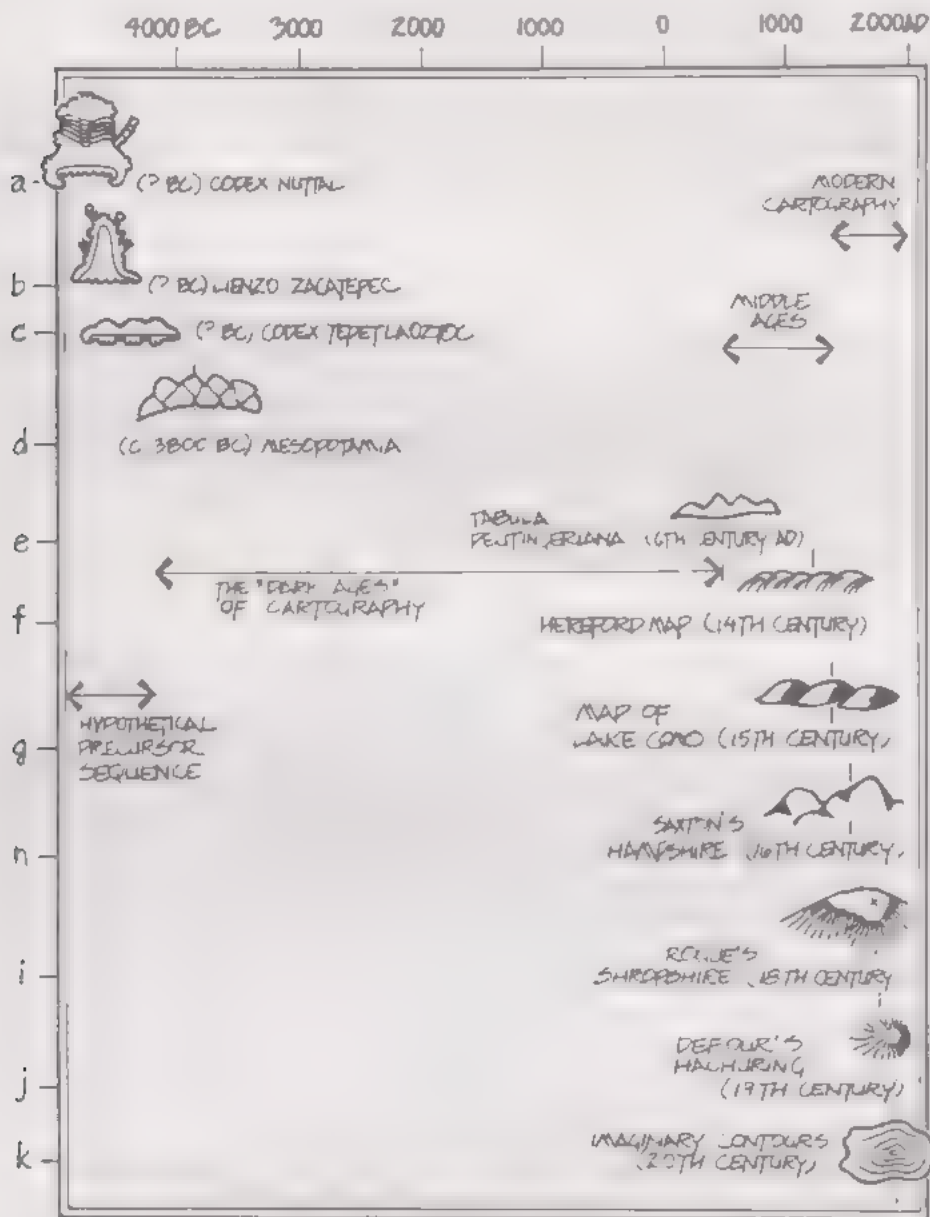 4000 BC 3000 2000 1000 0 1000 2000 AD
a
(? BC) CODEX NUTTAL
MODERN
CARTOGRAPHY
b
(? BC) LIENZO ZACATEPEC
MIDDLE
AGES
c
(? BC) CODEX TEPETLAOZTOC
d
(C 3800 BC) MESOPOTAMIA
e
TABULA
PEUTINGERIANA (6TH CENTURY AD)
THE "DARK AGES"
OF CARTOGRAPHY
f
HEREFORD MAP (14TH CENTURY)
HYPOTHETICAL
PRECURSOR
SEQUENCE
g
MAP OF
LAKE COMO (15TH CENTURY)
h
SAXTON'S
HAMPSHIRE (16TH CENTURY)
i
ROQUE'S
SHROPSHIRE (18TH CENTURY)
j
DEFOUR'S
HACHURING
(19TH CENTURY)
k
IMAGINARY CONTOURS
(20TH CENTURY)